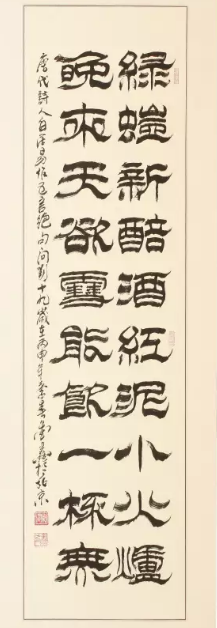 綠螘新醅酒紅泥小火爐
晚來天欲雪能飲一杯無
唐代詩人白居易作五言絕句問劉十九歲在丙申年季春於北京